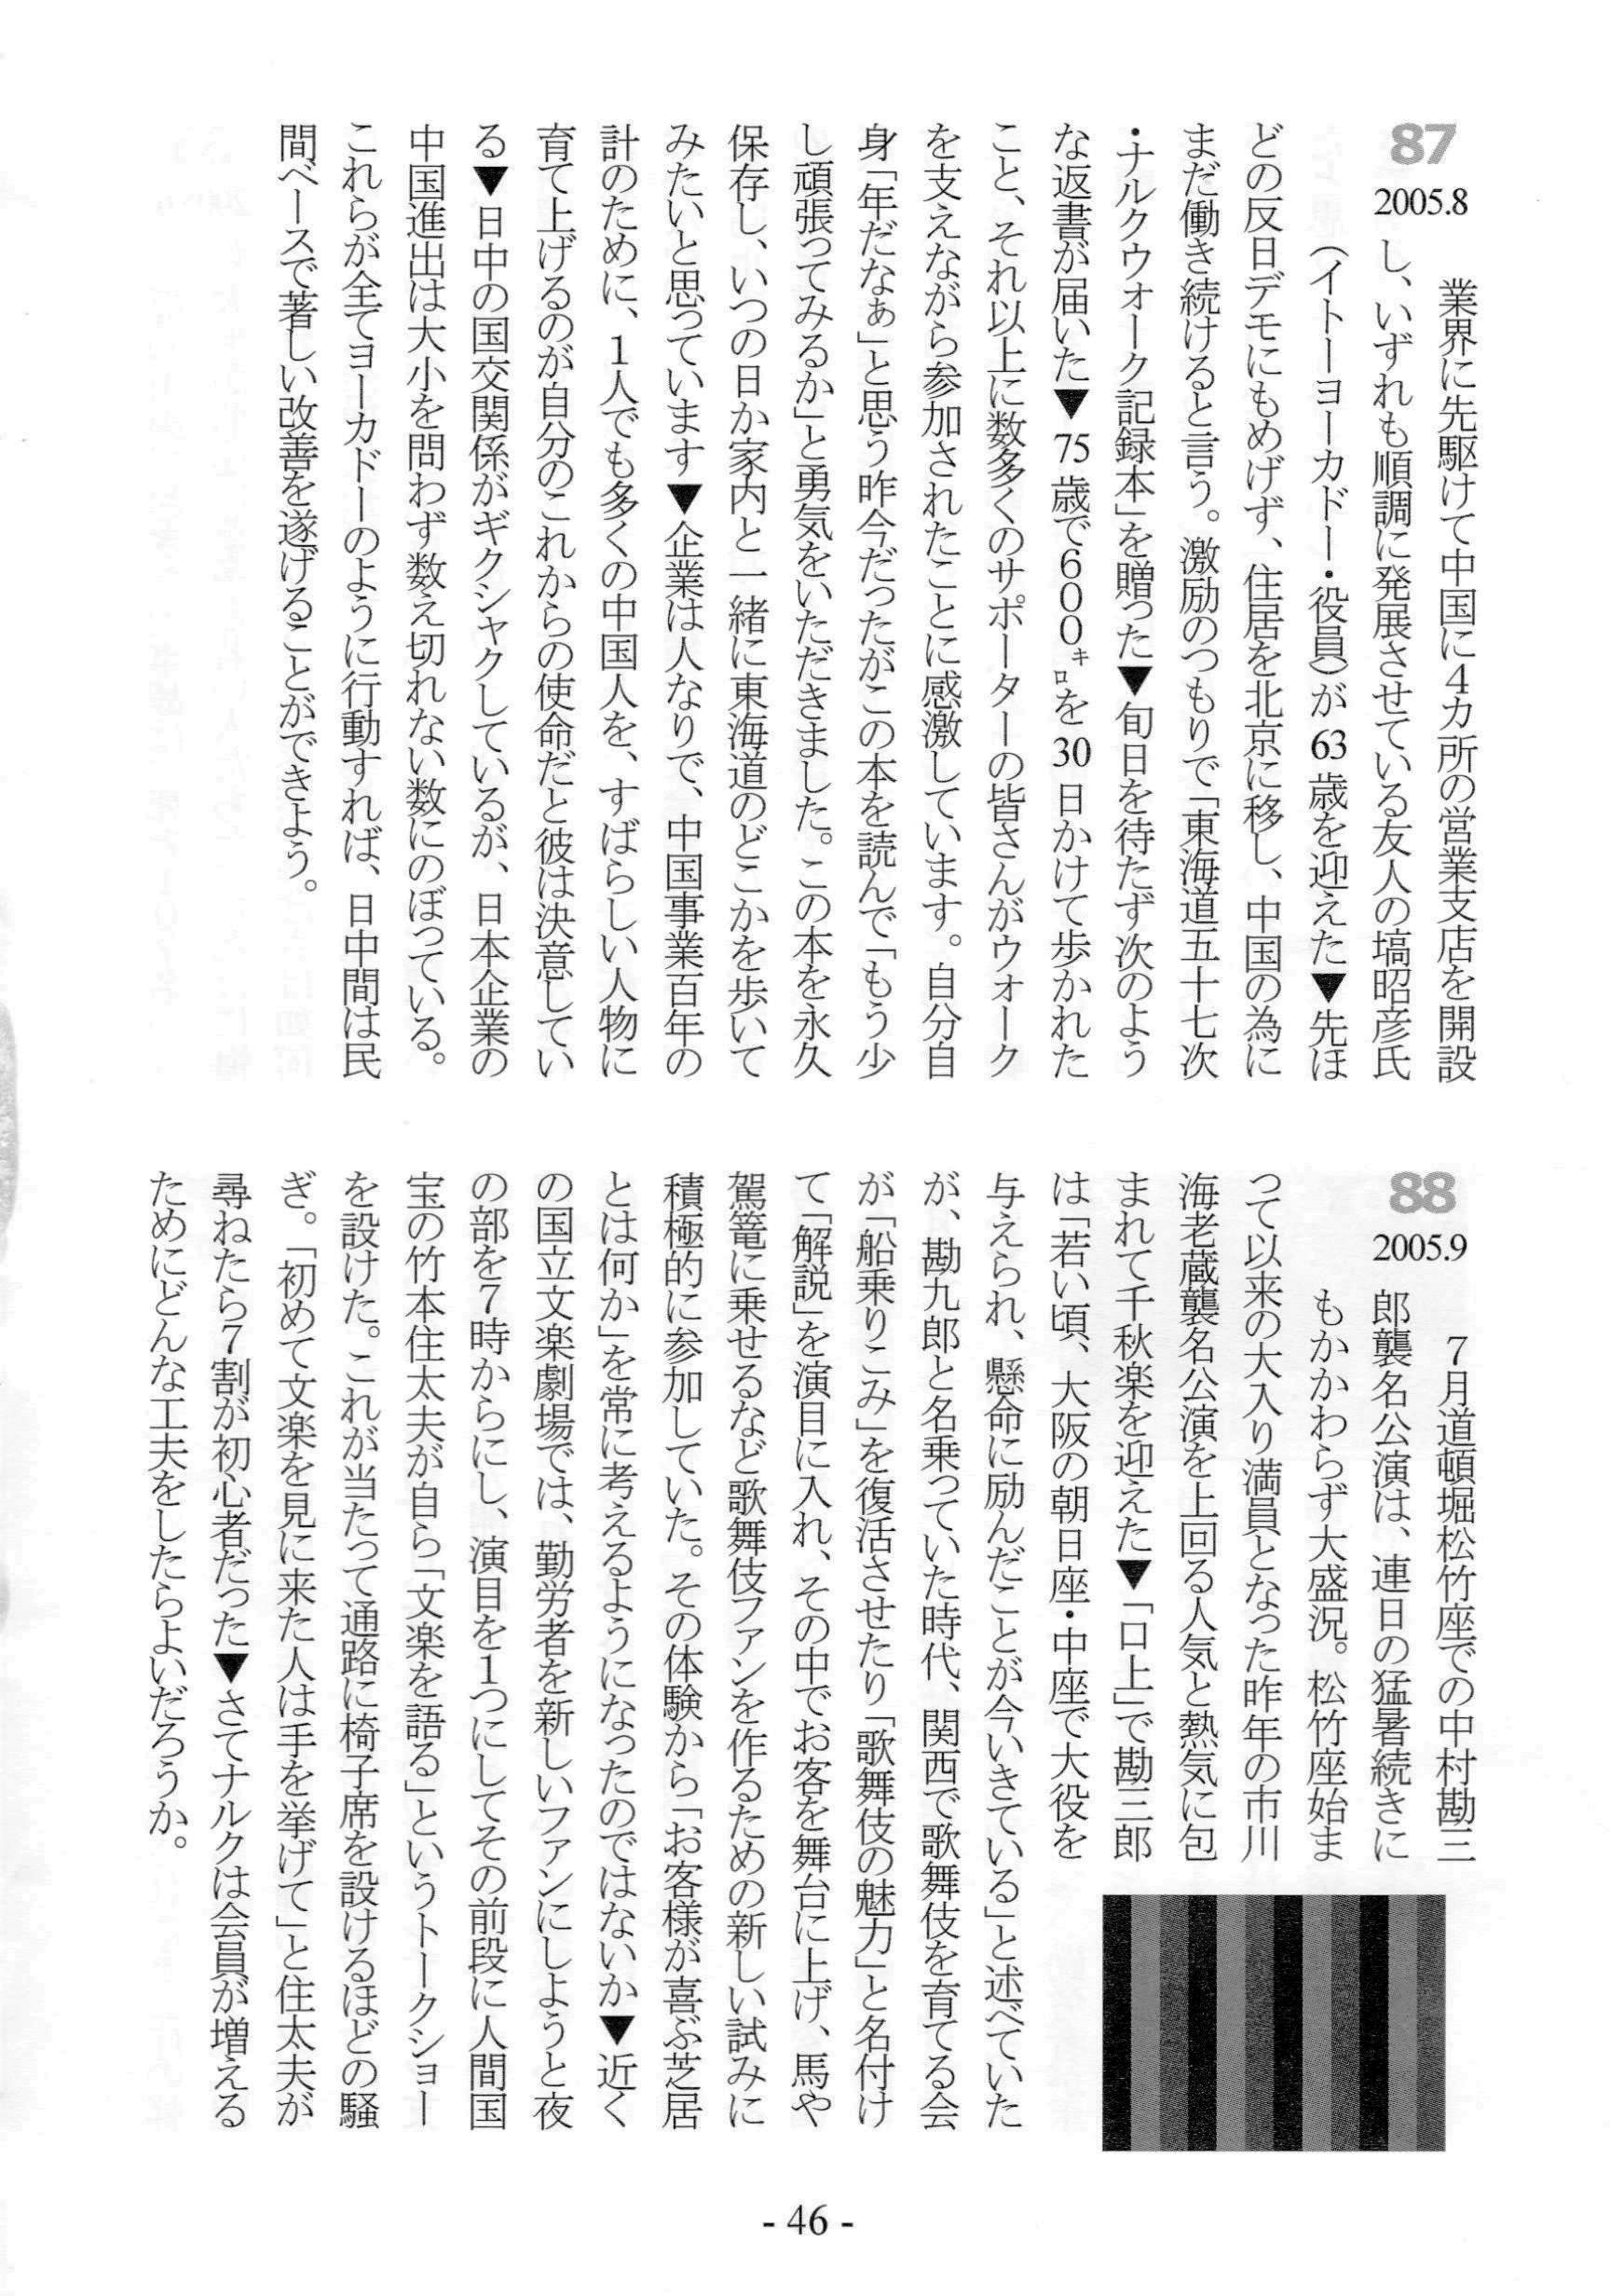 87
2005.8
業界に先駆けて中国に4カ所の営業支店を開設
し、いずれも順調に発展させている友人の塙昭彦氏
（イトーヨーカドー・役員）が 63 歳を迎えた▼先ほ
どの反日デモにもめげず、住居を北京に移し、中国の為に
まだ働き続けると言う。激励のつもりで「東海道五十七次
・ナルクウォーク記録本」を贈った▼旬日を待たず次のよう
な返書が届いた▼ 75 歳で６００㌔を 30 日かけて歩かれた
こと、それ以上に数多くのサポーターの皆さんがウォーク
を支えながら参加されたことに感激しています。自分自
身「年だなぁ」と思う昨今だったがこの本を読んで「もう少
し頑張ってみるか」と勇気をいただきました。この本を永久
保存し、いつの日か家内と一緒に東海道のどこかを歩いて
みたいと思っています▼企業は人なりで、中国事業百年の
計のために、1人でも多くの中国人を、すばらしい人物に
育て上げるのが自分のこれからの使命だと彼は決意してい
る▼日中の国交関係がギクシャクしているが、日本企業の
中国進出は大小を問わず数え切れない数にのぼっている。
これらが全てヨーカドーのように行動すれば、日中間は民
間ベースで著しい改善を遂げることができよう。
88
2005.9
7月道頓堀松竹座での中村勘三
郎襲名公演は、連日の猛暑続きに
もかかわらず大盛況。松竹座始ま
って以来の大入り満員となった昨年の市川
海老蔵襲名公演を上回る人気と熱気に包
まれて千秋楽を迎えた▼「口上」で勘三郎
は「若い頃、大阪の朝日座・中座で大役を
与えられ、懸命に励んだことが今いきている」と述べていた
が、勘九郎と名乗っていた時代、関西で歌舞伎を育てる会
が「船乗りこみ」を復活させたり「歌舞伎の魅力」と名付け
て「解説」を演目に入れ、その中でお客を舞台に上げ、馬や
駕篭に乗せるなど歌舞伎ファンを作るための新しい試みに
積極的に参加していた。その体験から「お客様が喜ぶ芝居
とは何か」を常に考えるようになったのではないか▼近く
の国立文楽劇場では、勤労者を新しいファンにしようと夜
の部を7時からにし、演目を1つにしてその前段に人間国
宝の竹本住太夫が自ら「文楽を語る」というトークショー
を設けた。これが当たって通路に椅子席を設けるほどの騒
ぎ。「初めて文楽を見に来た人は手を挙げて」と住太夫が
尋ねたら7割が初心者だった▼さてナルクは会員が増える
ためにどんな工夫をしたらよいだろうか。
- 46 -